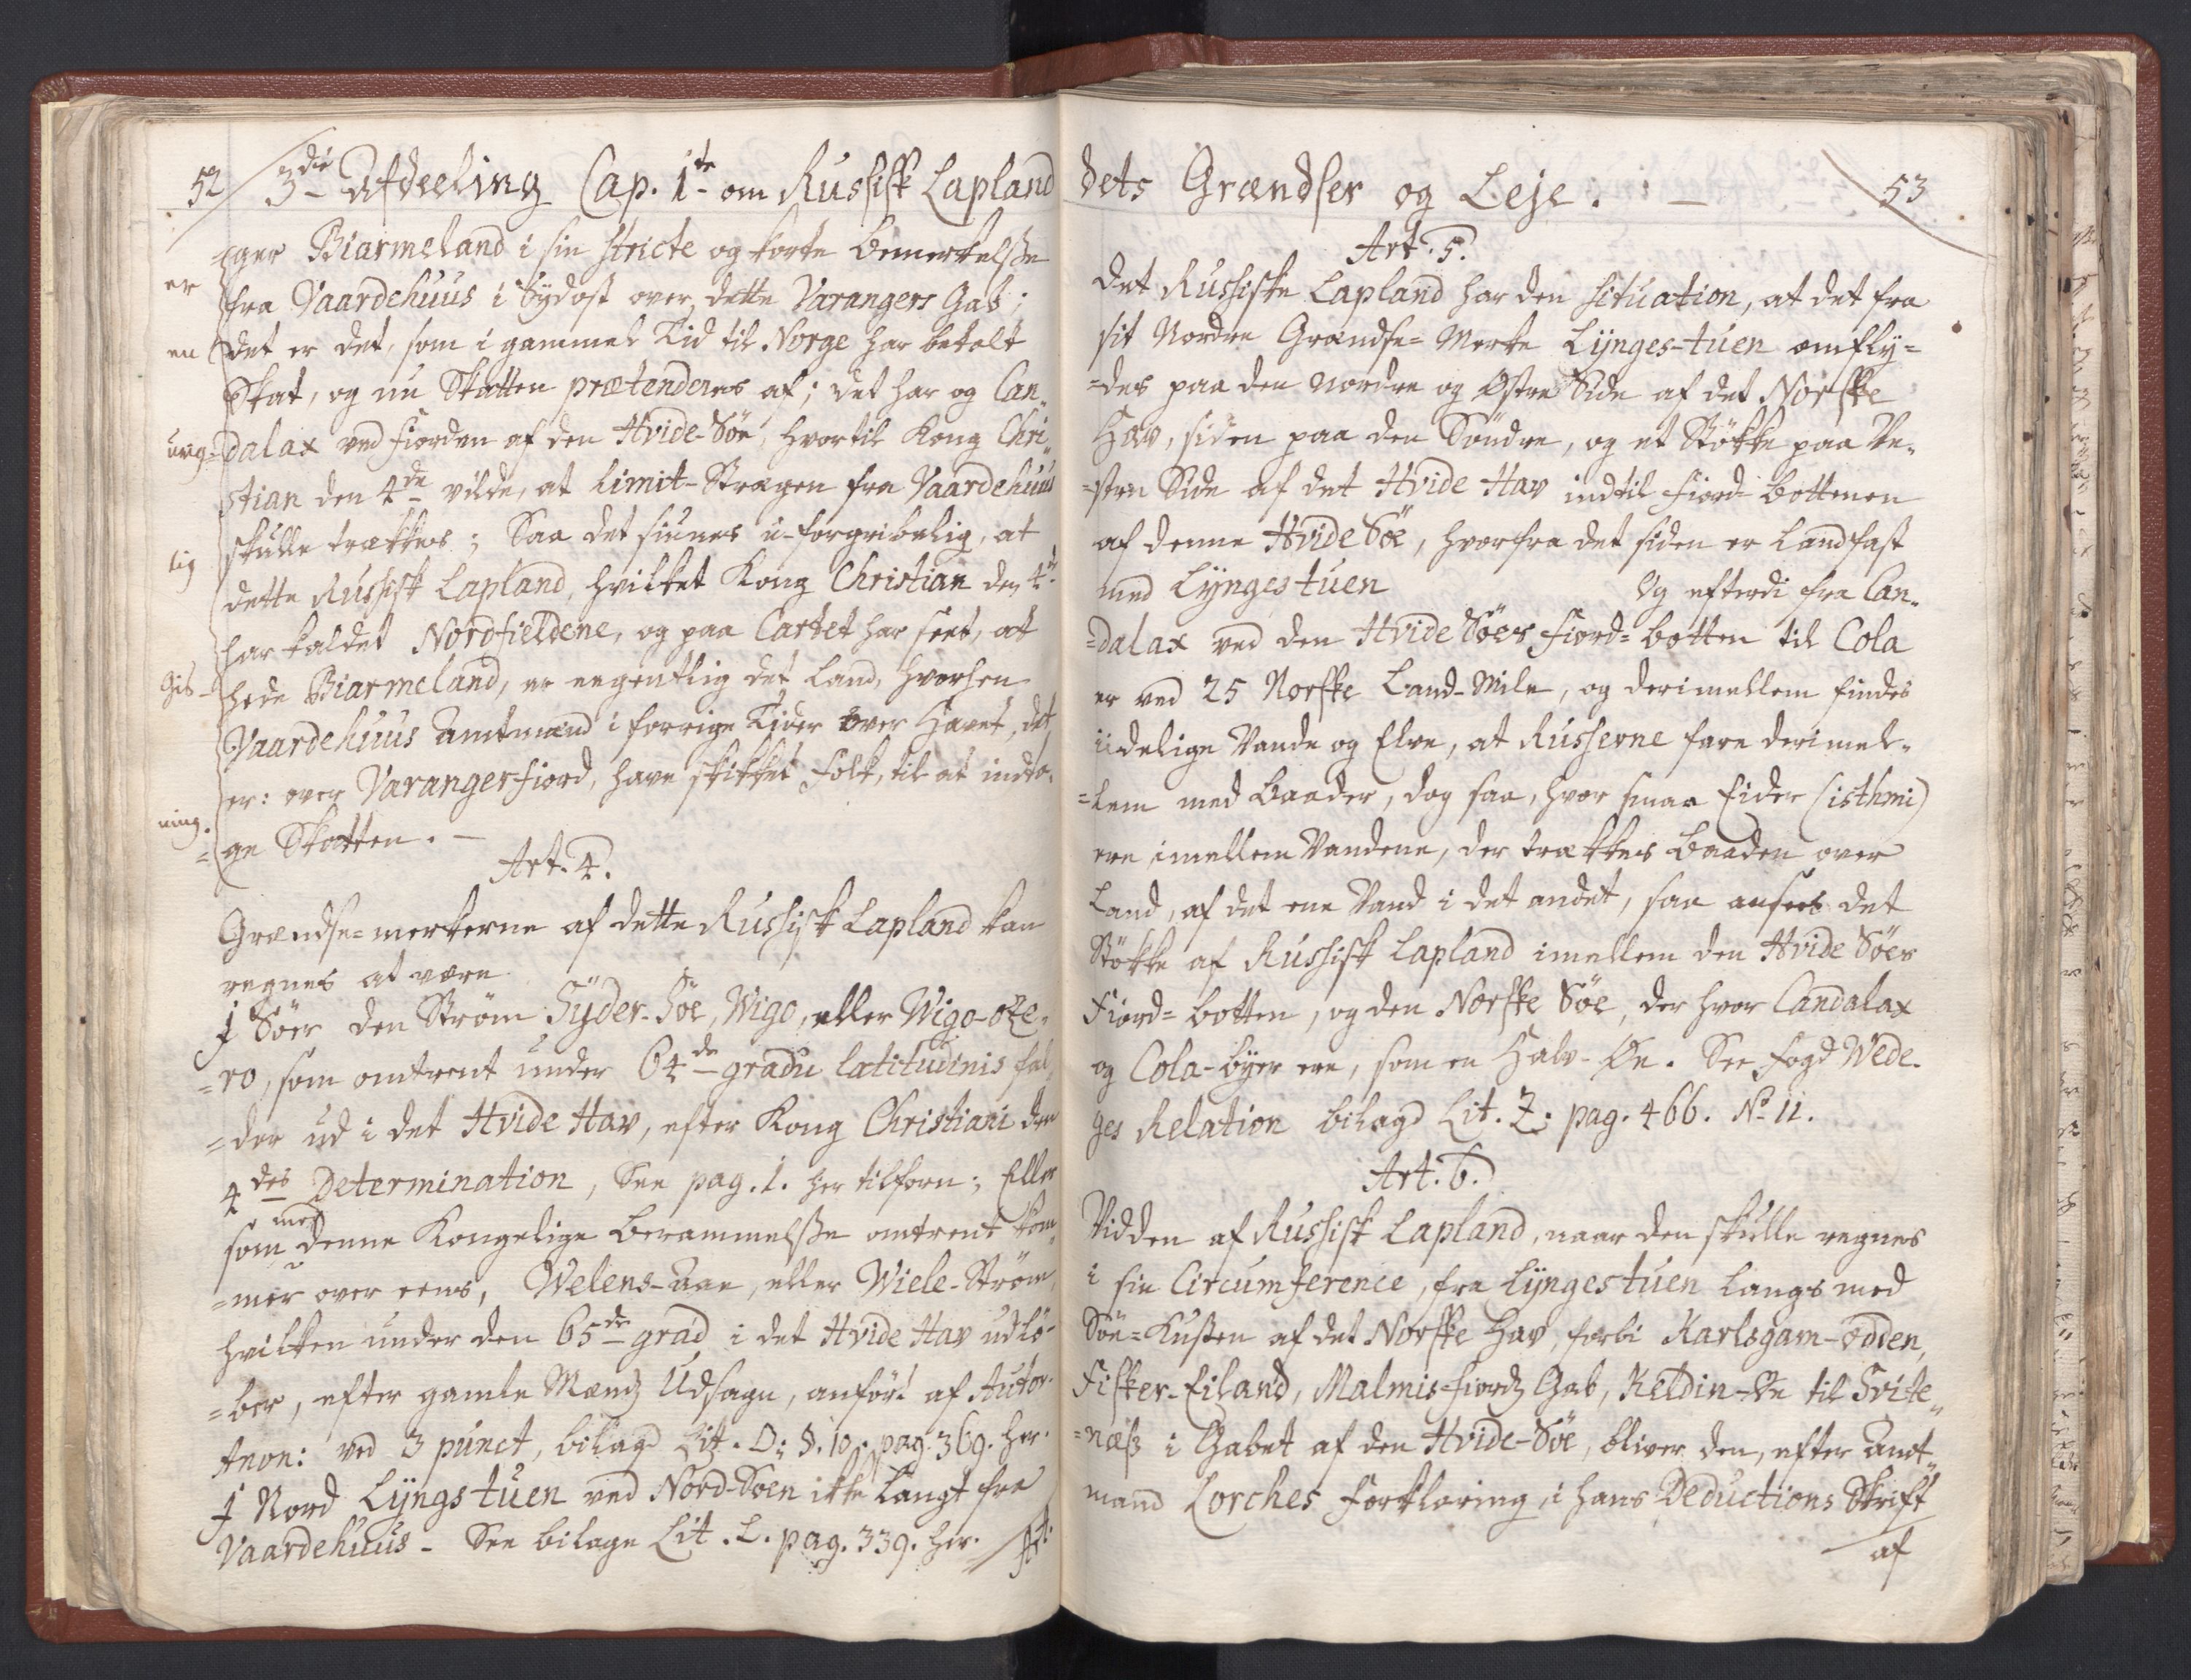 52 3die Afdeeling Cap. 1te om Russisk Lapland
=ger Biarmeland i sin stricte og korte bemerkelsße
fra Vaardehuus i Sydost over dette Varangers Gab;
det er det, som i gammel Tid til Norge har betalt
Skat, og nu Skatten prætenderes af; det har og Can„
dalax ved fiorden af den Hvide-Söe, hvortil Kong Chri„
stian den 4de vilde, at Limit-Strægen fra Vaardehuus
skulle trækkes; Saa det siunes u-forgribelig, at
dette Russisk Lapland, hvilket Kong Christian den 4de
har kaldet Nordfieldene, og paa Cartet har seet, at
hede Biarmeland, er eegentlig det Land, hvorhen
Vaardehuus Amtmænd i forrige Tider over Havet, det
er: over Varangerfiord, have skikket folk, til at indta„
=ge Skatten. —
er
en
uvg=
tig
Gis-
ning.
Art. 4.
Grændse=merkerne af dette Russisk Lapland kan
regnes at være
J Söer den Ström Syder-Söe, Wigo, eller Wigo-oze„
=ro, som omtrent under 64de gradu latitudinis fal„
=der ud i det Hvide Hav, efter Kong Christiani den
4des Determination, See pag. 1. her tilforn; Eller
som med denne Kongelige berammelsße omtrent kom„
=mer over eens, Welens-Aae, eller Wiele-Ström,
hvilken under den 65de grad i det Hvide Hav udlö„
=ber, efter gamle Mænds Udsagn, anført af Autor.
Anon: ved 3 punct, bilagd Lit. D: §. 10. pag. 369. her.
J Nord Lyngstuen ved Nord-Söen ikke langt fra
Vaardehuus - See bilage Lit. L. pag. 339. her.
Art:
dets Grændser og Leje. — 53
Art. 5.
Det Russiske Lapland har den situation, at det fra
sit Nordre Grændse= Merke Lynges-tuen omfly=
=des paa den nordre og Østre Side af det Norske
Hav, siden paa den Söndre, og et Stökke paa Ve„
=stre Side af det Hvide Hav indtil fiord-bottenen
af denne Hvide Söe, hvorfra det siden er Landfast
med Lyngestuen Og efterdi fra Can„
=dalax ved den Hvide Söes fiord=botten til Cola
er ved 25 Norske Land-Mile, og derimellem findes
iidelige Vande og Elve, at Russerne fare derimel„
=lem med baader, dog saa, hvor smaa Eider (isthmi)
ere imellem Vandene, der trækkes baaden over
Land, af det ene Vand i det andet, saa ansees det
Stökke af Russisk Lapland imellem den Hvide Söes
Fiord=botten, og den Norske Söe, der hvor Candalax
og Cola-byer ere, som en Halv-Øe. See fogd Wede„
ges Relation bilagd Lit. Z: pag. 466. No 11.
Art. 6.
Vidden af Russisk Lapland, naar den skulle regnes
i sin Circumference, fra Lyngestuen langs med
Söe=Kusten af det Norske Hav, forbi Karlsgam-odden,
Fisker-Eiland, Malmis-fiords Gab, Keldin-Øe til Svite„
=næs i Gabet af den Hvide-Söe, bliver den, efter Amt„
mand Lorches forklaring, i hans Deductions Skrift
af